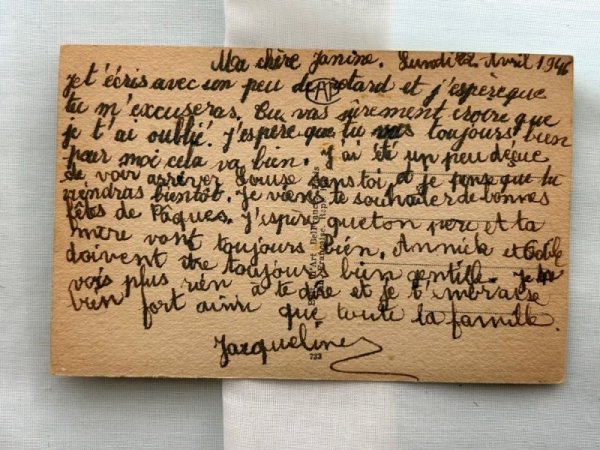 Ma chère Janine. Lundi 22 Avril 1946
je t'écris avec un peu de retard et j'espère que
tu m'excuseras. Tu vas sûrement croire que
je t'ai oublié. j'espère que tu vas toujours bien
pour moi cela va bien. j'ai été un peu déçue
de voir arriver sans toi et je pense que tu
viendras bientôt. Je viens te souhaiter de bonnes
fêtes de Pâques. j'espère que ton père et ta
mère vont toujours bien. Annick et
doivent être toujours bien gentille. Je ne
vois plus rien a te dire et je t'embrasse
bien fort ainsi que toute la famille.
Jacqueline
733